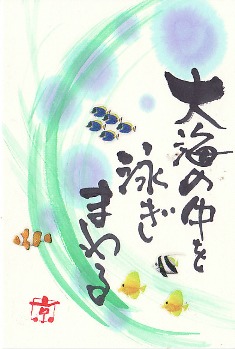 大海の中を
泳ぎ
まわる
京